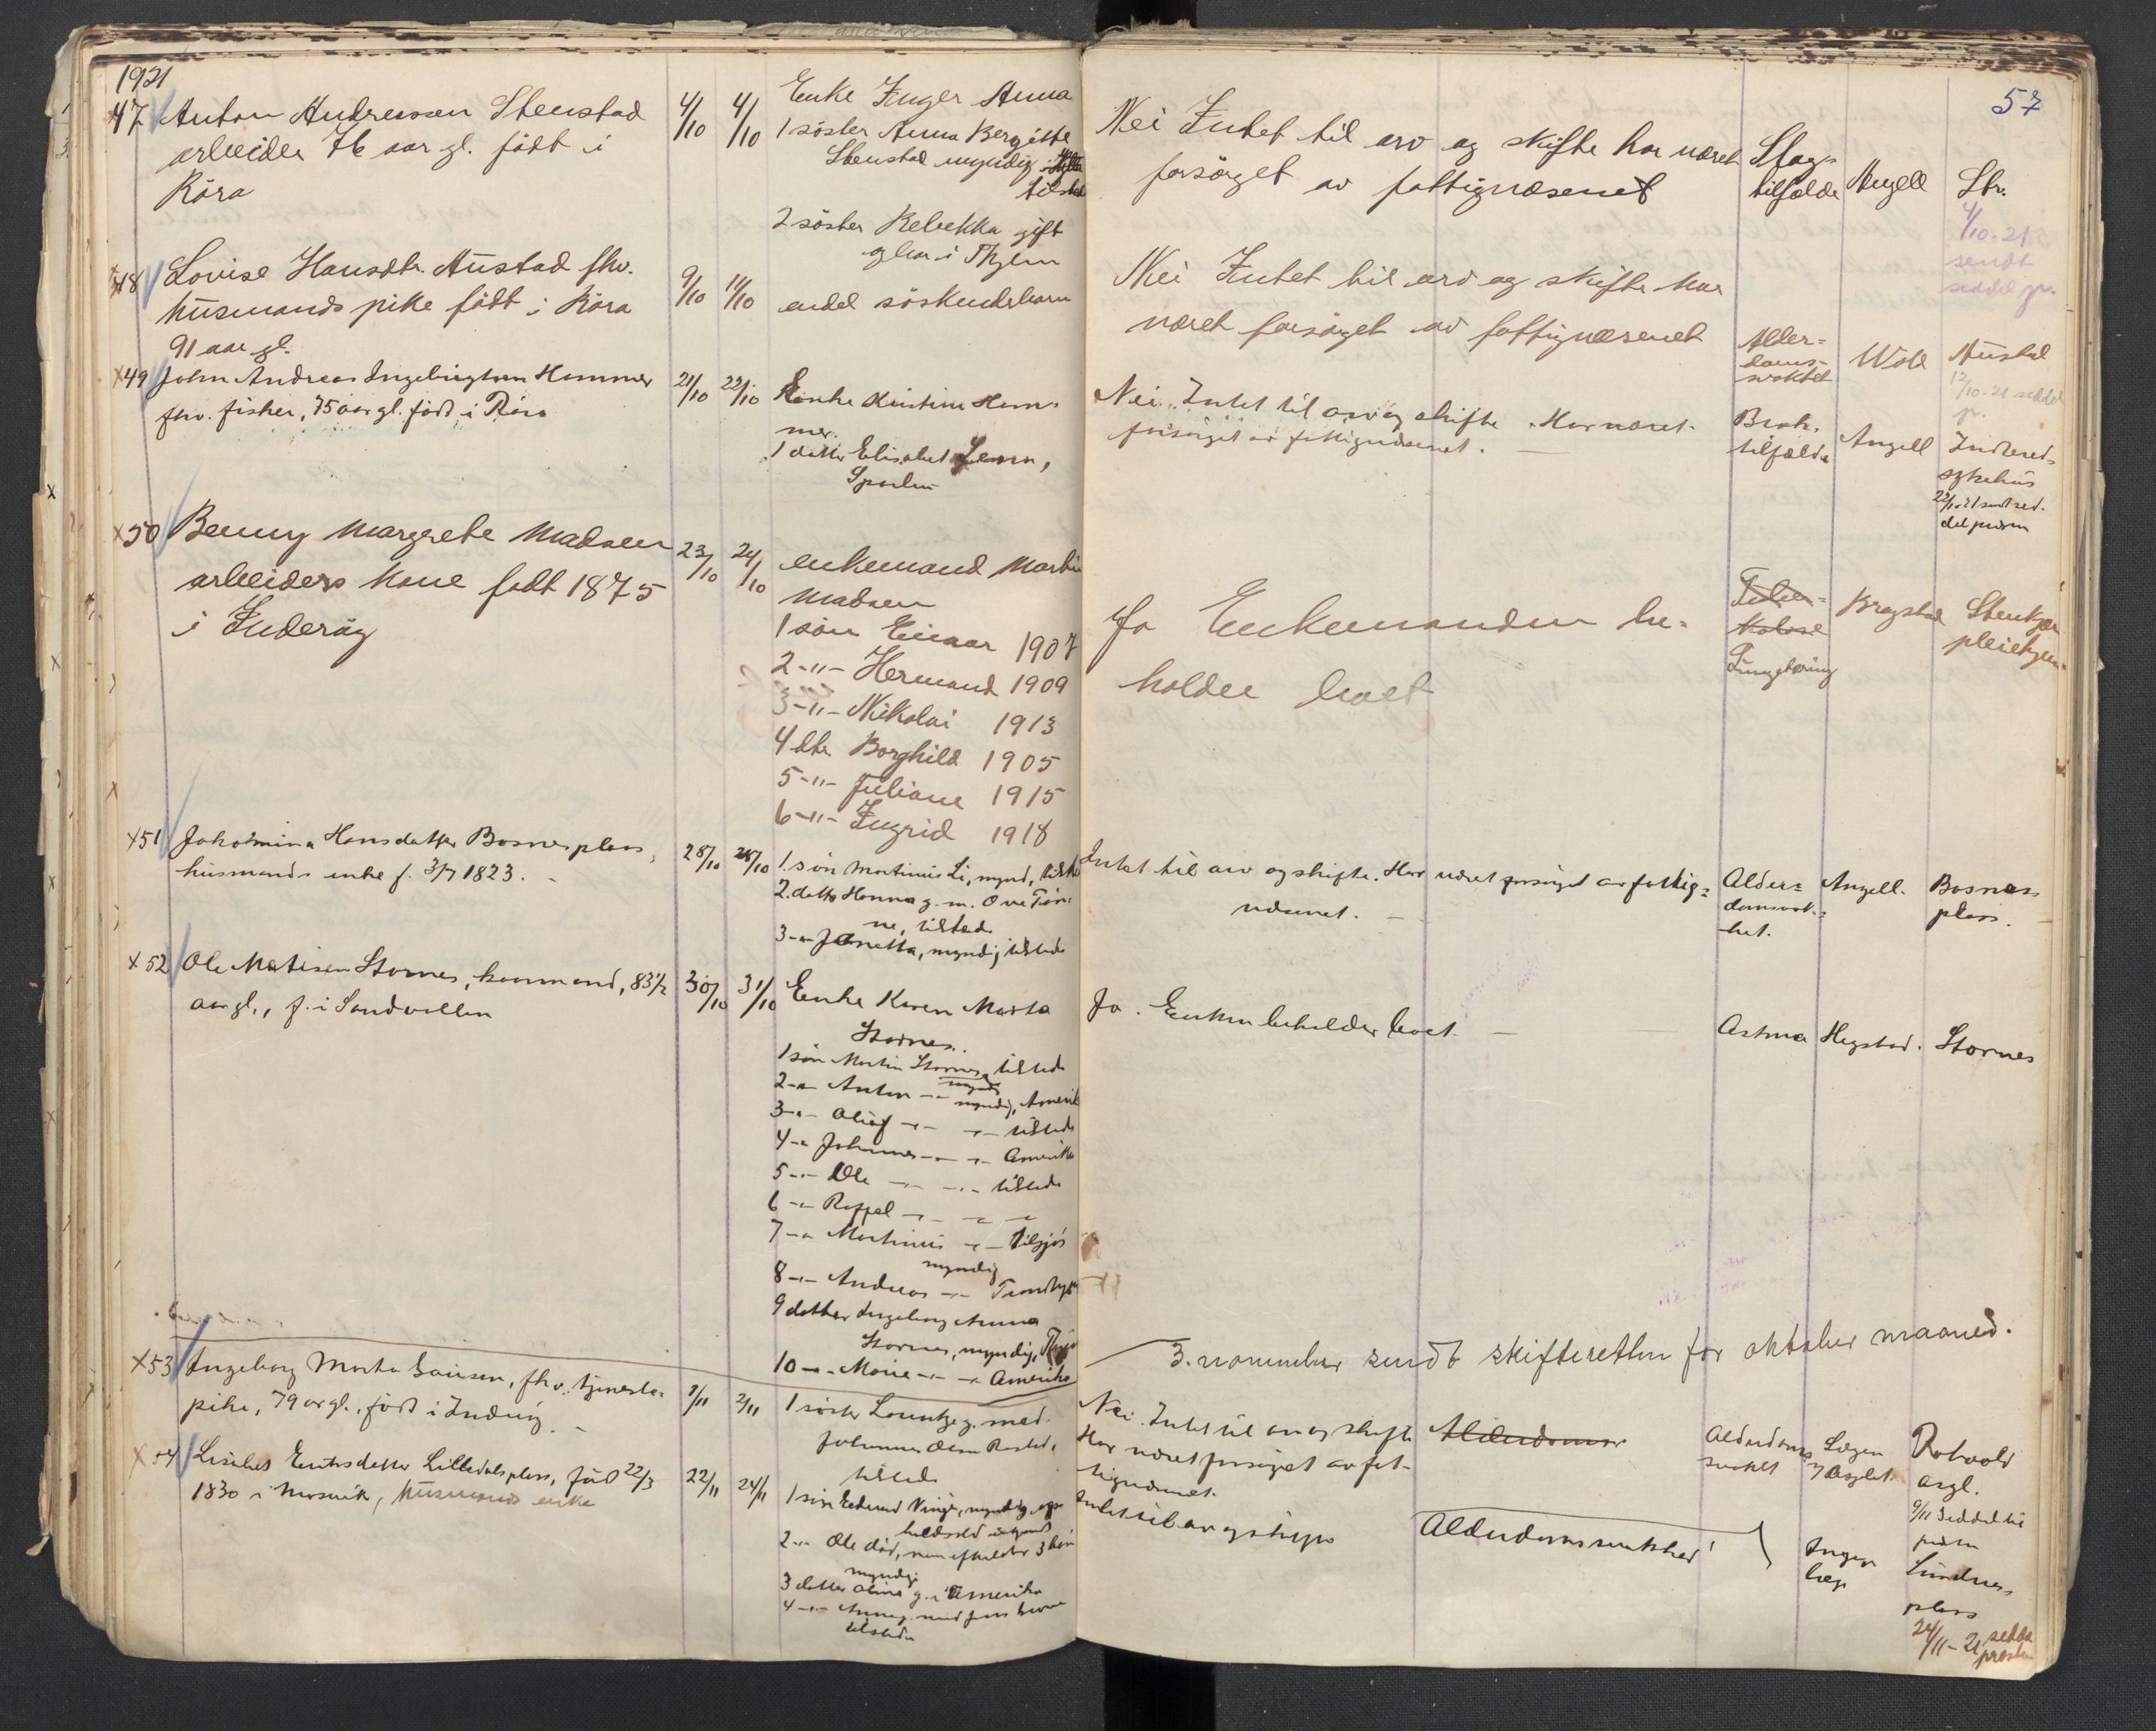 1921
57
47 Anton Andreassen Stenstad
arbeider 76 aar gl. født i
Röra
4/10 4/10
Enke Inger Anna
1 söster Anna Bergitte
Stenstad myndig
tilsted
2 söster Rebekka gift
Nei Intet til arv og skifte har været
forsörget av fattigvæsenet
Slag-
tilfælde
Angell
Str.
4/10-21
sendt
seddel pr.
48 Lovise Hansdtr. Austad fhv.
husmands pike född i Röra
91 aar gl.
9/10 11/10
endel söskendebarn
Nei Intet til arv og skifte har
været forsörget av fattigvæsenet
Alder-
doms-
svakhet
Wold
Austad
12/10-21 seddel
pr.
49 John Andreas Ingebrigtsen Hammer
fhv. fisher, 75 aar gl. född i Röra
21/10 22/10
Enke Kristine Ham-
mer.
1 datter Elisabet
Sparbu
Nei. Intet til arv og skifte. Har været
forsörget av fattigvæsenet.
Brok-
tilfælde
Angell
Indhered-
sykehus
22/10 21 sendt sed-
del presten
50 Benny Margrete Madsen
arbeiders kone født 1875
i Inderöy
23/10 24/10
enkemand Martin
Madsen
1 sön Einar 1907
2 -"- Hermand 1909
3 -"- Nikolai 1913
4 dtr Borghild 1905
5 -"- Juliane 1915
6 -"- Ingrid 1918
Ja Enkemanden be-
holder boet
Tuber-
kolose
Lungetæring
Bragstad
Stenkjær
pleiehjem
51 Jakobmina Hansdatter Bosnesplass,
husmands enke f. 3/7 1823. -
28/10 28/10
1. sön Martinus Li, mynd, tilsted
2. datter Hanna g. m. Ove Tön-
ne, tilstede
3 -"- Janetta, myndig tilstede
Intet til arv og skifte. Har været forsörget av fattig-
væsenet. -
Alder-
domsvak-
het.
Angell.
Bosnes
plass.
52 Ole Matisen Stornes, kaarmand, 83 1/2
aar gl., f. i Sandvollan
30/10 31/10
Enke Karen Marta
Stornes.
1 sön Martin Stornes, tilstede
mynd
2 -"- Anton -"- myndig, Amerik
3 -"- Oluf -"- -"- tilstede
4 -"- Johannes -"- -"- Amerika
5 -"- Ole -"- -"- tilstede
6 -"- Raffel -"- -"- -"-
7 -"- Martinus -"-
myndig
8 -"- Andreas -"- Trondhj
9 datter Ingeborg Anna
Stornes, myndig,
10 -"- Marie -"- -"- Amerika
Ja. Enken beholder boet
Astma
Hegstad.
Stornes
3. november sendt skifteretten for oktober maaned.
53 Ingeborg Marta Sairsen, fhv. tjeneste-
pike, 79 aar gl., född i Inderöy. -
1/11 2/11
1 söster g. med
Johannes Olsen
tilstede
Nei. Intet til arv og skifte
Har været forsörget av fat-
tigvæsenet.
Alderdoms
Alderdoms
svakhet
Lægen
Rotvold
asyl.
9/11 seddel til
presten
54 Lisabet Eriksdatter Lilledalsplass, född 22/3
1830 i Mosvik, husmands enke
22/11 24/11
1 sön Edvard Vinje, myndig, op-
holdssted ukjendt
2 -"- Ole död, men efterlater 3 barn
myndige
3 datter Oline g. i Amerika
4 -"- Anna g. med Jens
tilstede
Intet til arv og skifte
Alderdomssvakhet
Ingen
læge
Lundnes
plass
24/11-21 seddel
presten